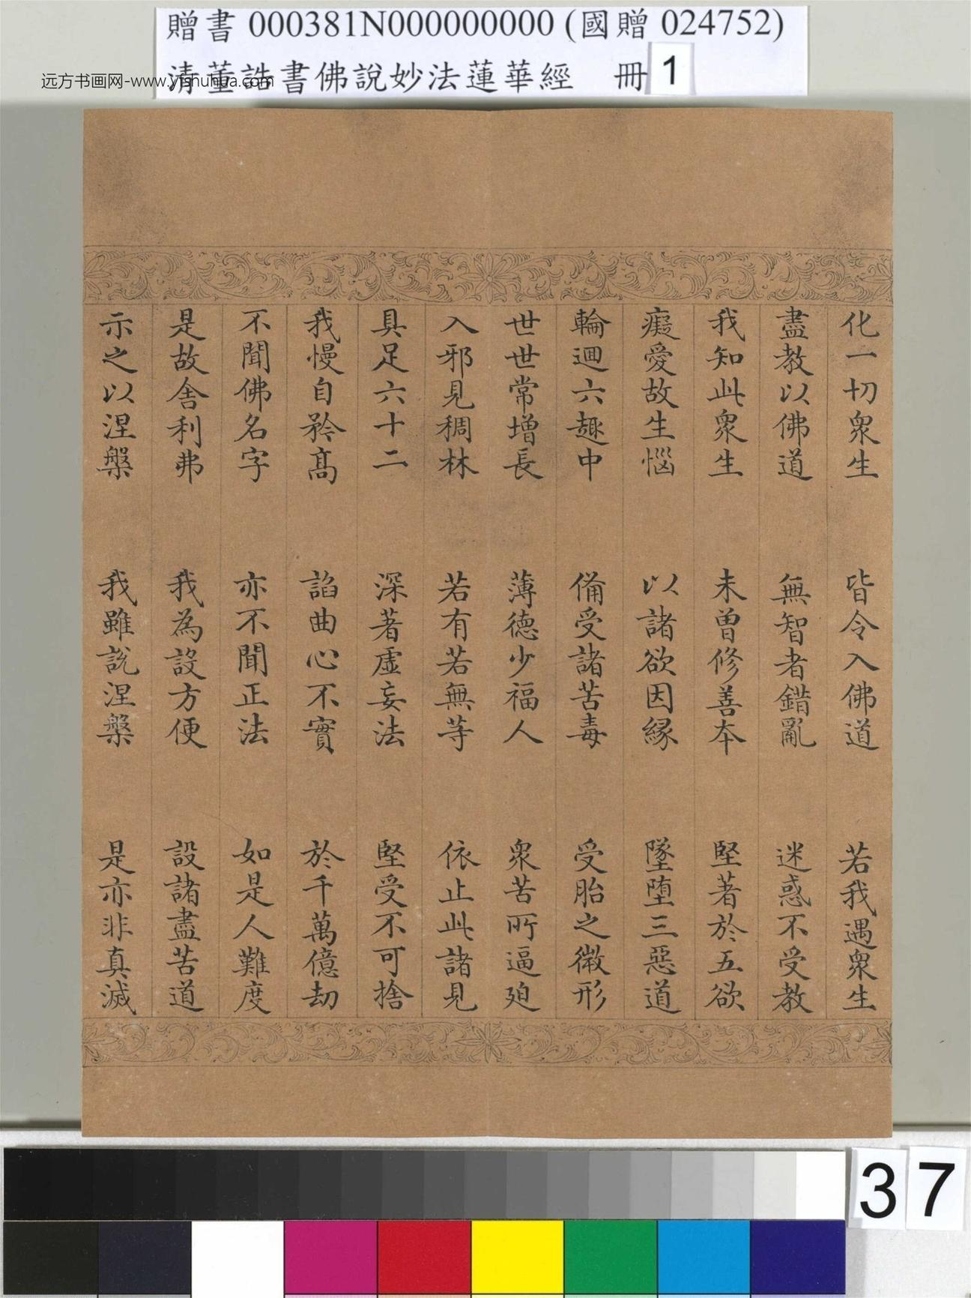 贈書 000381N000000000 (國贈 024752)
清董誥書佛說妙法蓮華經 冊 1
远方书画网-www.yfshuhua.com
化一切衆生 皆令入佛道 若我遇衆生
盡教以佛道 無智者錯亂 迷惑不受教
我知此衆生 未曽修善本 堅著於五欲
癡愛故生惱 以諸欲因緣 墜墮三惡道
輪迴六趣中 備受諸苦毒 受胎之微形
世世常增長 薄德少福人 衆苦所逼迫
入邪見稠林 若有若無等 依止此諸見
具足六十二 深著虛妄法 堅受不可捨
我慢自矜髙 諂曲心不實 於千萬億劫
不聞佛名字 亦不聞正法 如是人難度
是故舍利弗 我為設方便 設諸盡苦道
示之以涅槃 我雖說涅槃 是亦非真滅
37